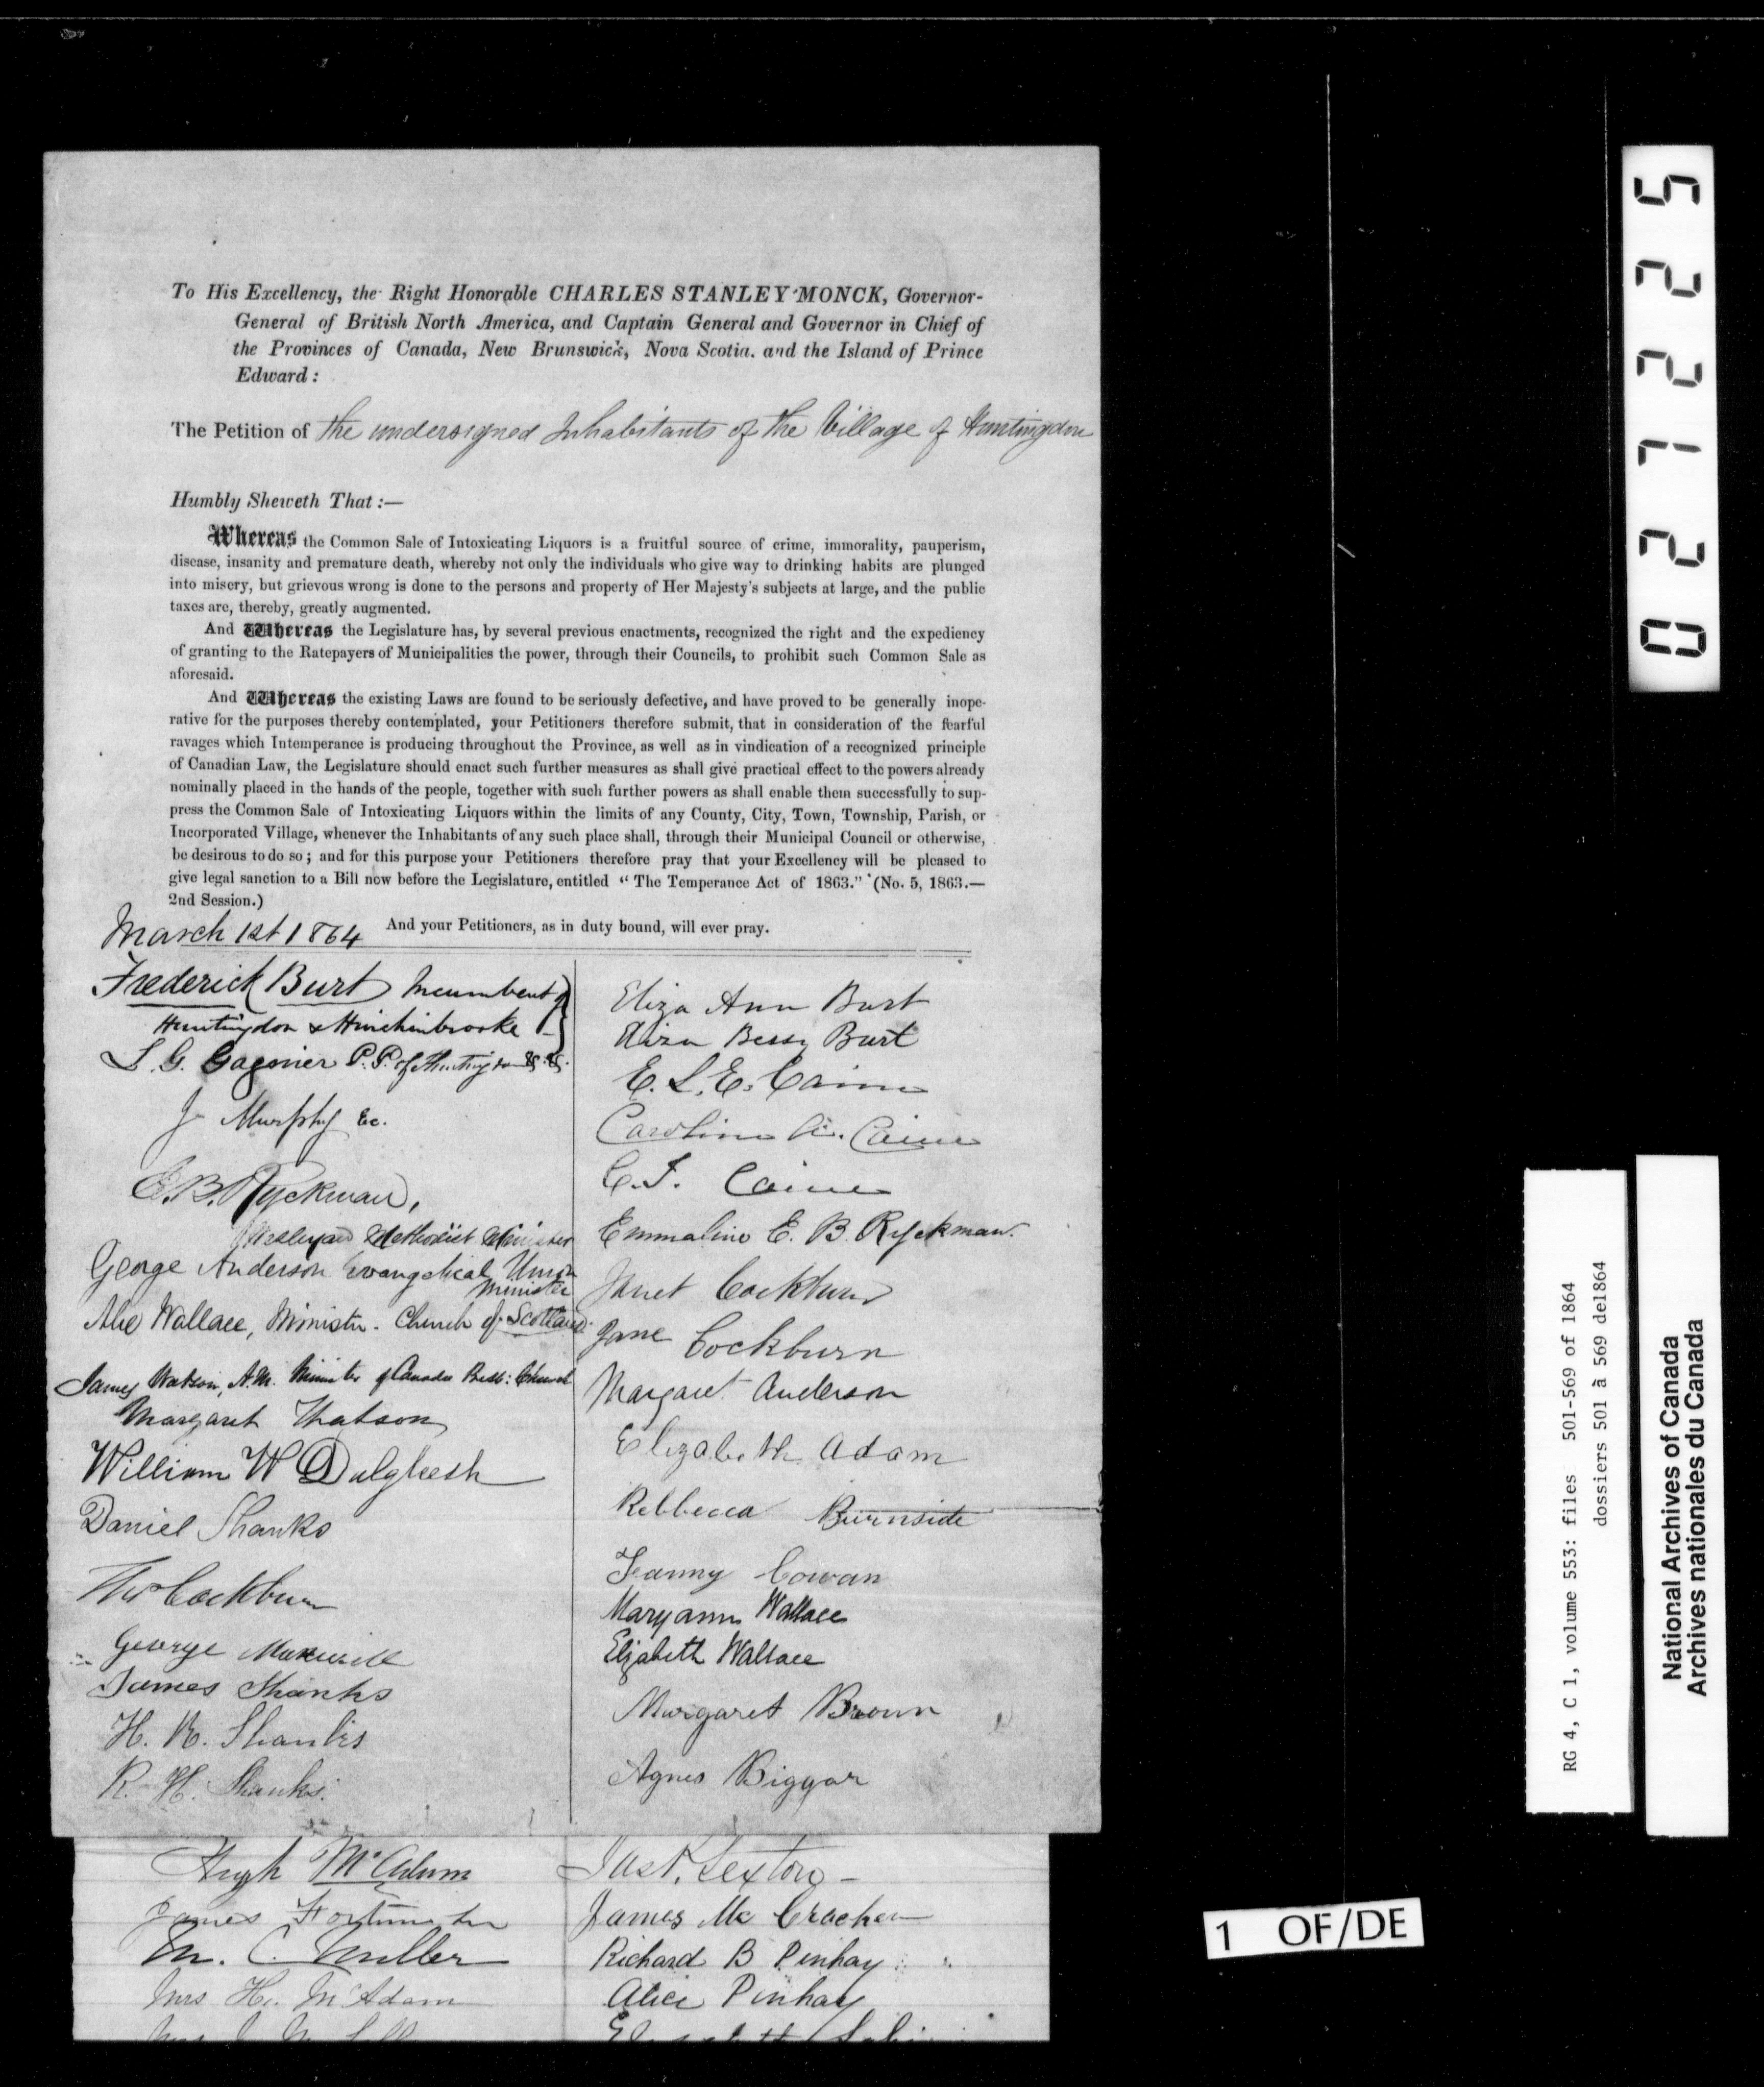 To His Excellency, the Right Honorable CHARLES STANLEY MONCK, Governor-
General of British North America, and Captain General and Governor in Chief of
the Provinces of Canada, New Brunswick, Nova Scotia. and the Island of Prince
Edward:
The Petition of the undersigned Inhabitants of the Village of Huntingdon
Humbly Sheweth That:—
Whereas the Common Sale of Intoxicating Liquors is a fruitful source of crime, immorality, pauperism,
disease, insanity and premature death, whereby not only the individuals who give way to drinking habits are plunged
into misery, but grievous wrong is done to the persons and property of Her Majesty's subjects at large, and the public
taxes are, thereby, greatly augmented.
And Whereas the Legislature has, by several previous enactments, recognized the right and the expediency
of granting to the Ratepayers of Municipalities the power, through their Councils, to prohibit such Common Sale as
aforesaid.
And Whereas the existing Laws are found to be seriously defective, and have proved to be generally inope-
rative for the purposes thereby contemplated, your Petitioners therefore submit, that in consideration of the fearful
ravages which Intemperance is producing throughout the Province, as well as in vindication of a recognized principle
of Canadian Law, the Legislature should enact such further measures as shall give practical effect to the powers already
nominally placed in the hands of the people, together with such further powers as shall enable them successfully to sup-
press the Common Sale of Intoxicating Liquors within the limits of any County, City, Town, Township, Parish, or
Incorporated Village, whenever the Inhabitants of any such place shall, through their Municipal Council or otherwise,
be desirous to do so; and for this purpose your Petitioners therefore pray that your Excellency will be pleased to
give legal sanction to a Bill now before the Legislature, entitled "The Temperance Act of 1863." (No. 5, 1863.—
2nd Session.)
And your Petitioners, as in duty bound, will ever pray.
March 1st 1864
Frederick Burt Incumbent of
Huntingdon & Hinchinbrooke
L. G. Gagnier P.P. of Huntingdon &. &.
J Murphy Ec.
E. B. Ryckman,
Wesleyan Methodist Minister
George Anderson Evangelical Union
Minister
Alex Wallace, Minister. Church of Scotland.
James Watson, A.M. Minister of Canada Presb: Church
Margaret Watson
William W Dalgliesh
Daniel Shanks
Thos Cockburn
George
James Shanks
H. R. Shanks
R. H. Shanks.
Eliza Ann Burt
Eliza Bessy Burt
E. L. E. Caine
Caroline A. Caine
C. F. Caine
Emmaline E. B. Ryckman.
Janet Cockburn
Jane Cockburn
Margaret Anderson
Elizabeth Adam
Rebbecca Burnside
Fanny Cowan
Maryann Wallace
Elizabeth Wallace
Margaret Brown
Agnes Biggar
Hugh McAdam
James
M. C. Miller
Mrs H. McAdam
Jas T. Sexton
James McCracken
Richard B Pinhay
Alice Pinhay
02 7 2 2 5
RG 4, C 1, volume 553: files 501-569 of 1864
dossiers 501 à 569 de1864
National Archives of Canada
Archives nationales du Canada
1 OF/DE